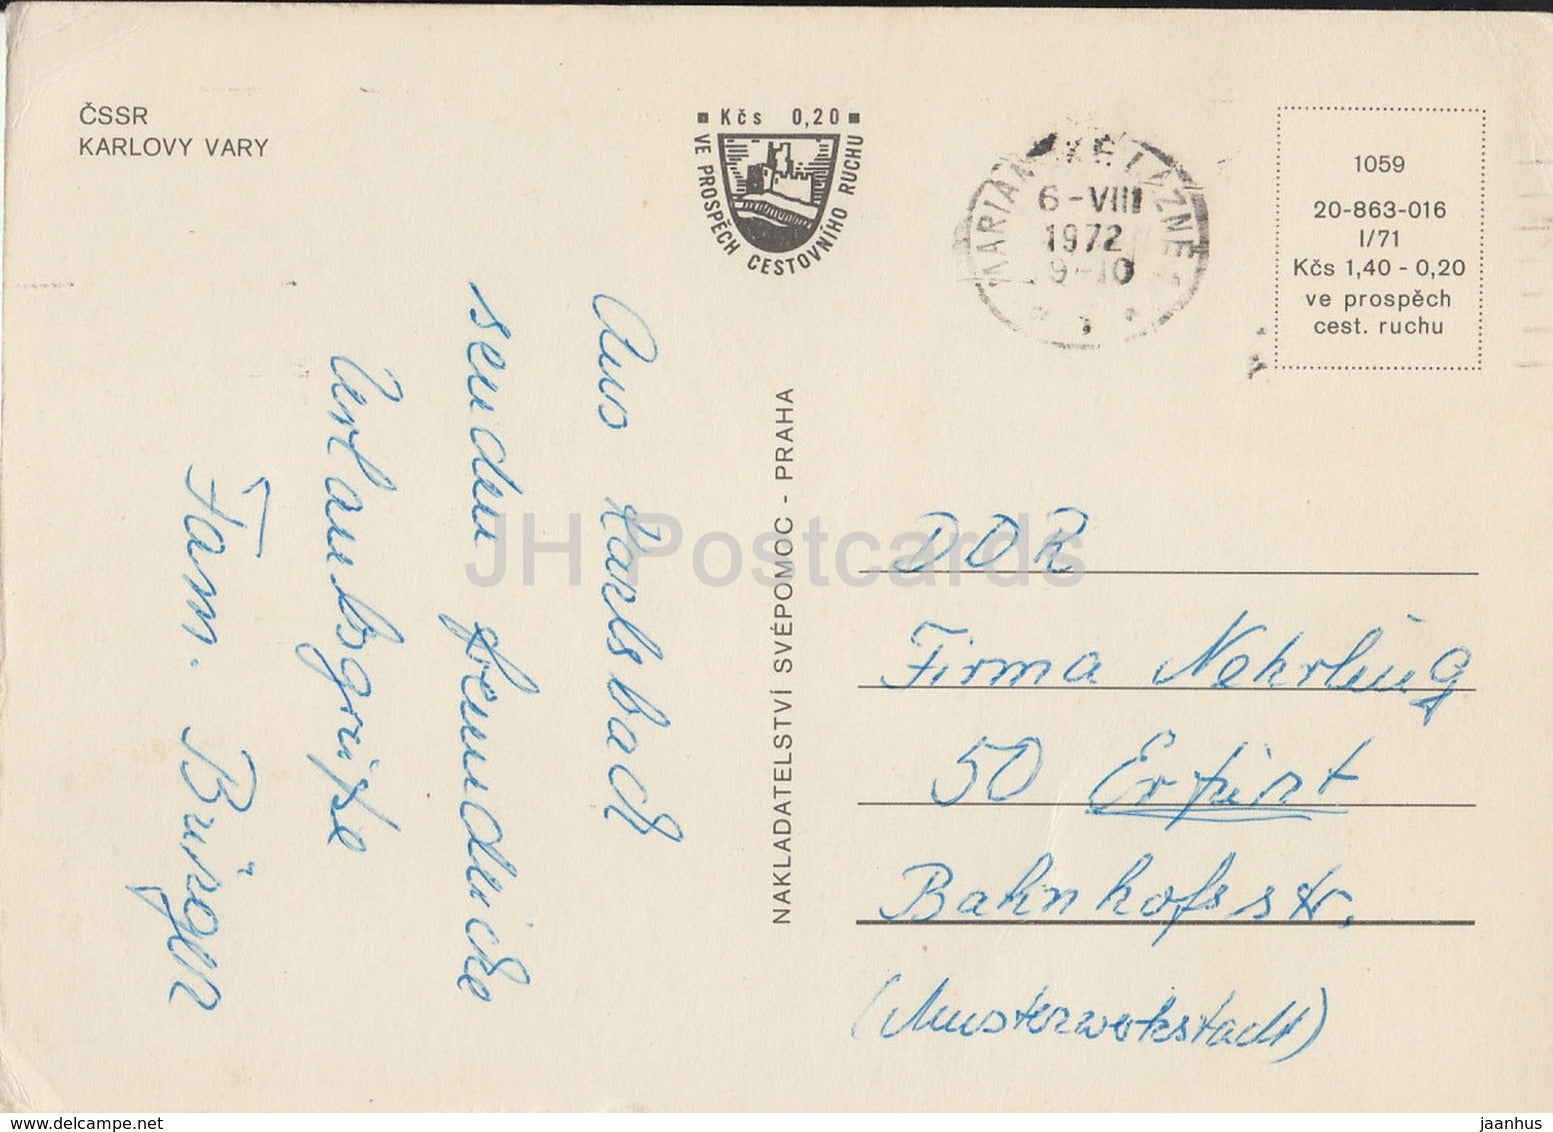 ČSSR
KARLOVY VARY
■ Kčs 0,20 ■
VE PROSPĚCH CESTOVNÍHO RUCHU
MARIÁNSKÉ LÁZNĚ 1
6-VIII
1972
9-10
1059
20-863-016
I/71
Kčs 1,40 - 0,20
ve prospěch
cest. ruchu
Aus Karlsbad
senden freundliche
Urlaubsgrüße
Fam.
NAKLADATELSTVÍ SVÉPOMOC - PRAHA
DDR
Firma Nehrling
50 Erfurt
Bahnhofsstr.
(Musterwerkstadt)
JH Postcards
delcampe.net
jaanhus